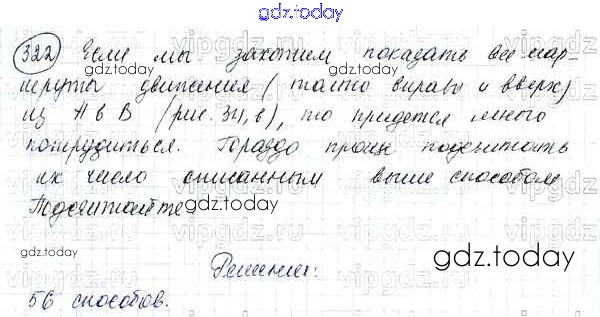 gdz.today
322 Если мы захотим показать все мар-
шруты движения (только вправо и вверх)
из А в В (рис. 34, в), то придется много
потрудиться. Гораздо проще подсчитать
их число описанным выше способом
Подсчитайте.
gdz.today
gdz.today
gdz.today
gdz.today
Решение:
56 способов.